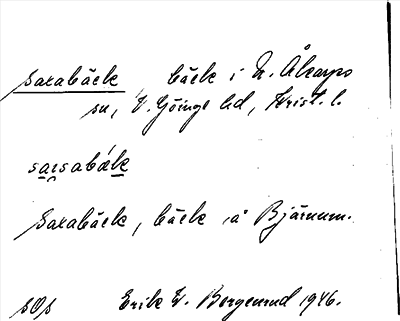 Saxabäck, bäck i N. Åkarps
sn, V. Göinge hd, Krist. l.
saxsabäk
Saxabäck, bäck, å Bjärnum.
sOs Erik W. Borgenrud 1946.